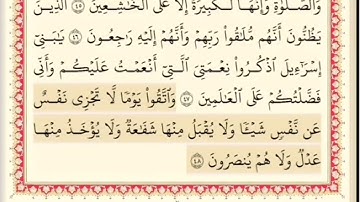 وَالصَّلَوٰةِ وَإِنَّهَا لَكَبِيرَةٌ إِلَّا عَلَى الْخَاشِعِينَ ٤٥ الَّذِينَ
يَظُنُّونَ أَنَّهُم مُّلَاقُوا رَبِّهِمْ وَأَنَّهُمْ إِلَيْهِ رَاجِعُونَ ٤٦ يَا بَنِي
إِسْرَائِيلَ اذْكُرُوا نِعْمَتِيَ الَّتِي أَنْعَمْتُ عَلَيْكُمْ وَأَنِّي
فَضَّلْتُكُمْ عَلَى الْعَالَمِينَ ٤٧ وَاتَّقُوا يَوْمًا لَّا تَجْزِي نَفْسٌ
عَن نَّفْسٍ شَيْئًا وَلَا يُقْبَلُ مِنْهَا شَفَاعَةٌ وَلَا يُؤْخَذُ مِنْهَا
عَدْلٌ وَلَا هُمْ يُنصَرُونَ ٤٨